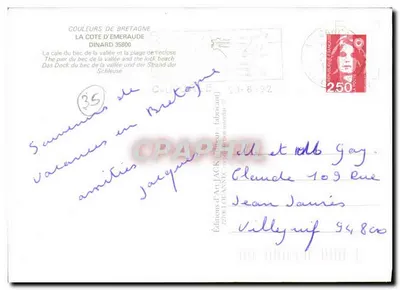 COULEURS DE BRETAGNE
LA COTE D'EMERAUDE
DINARD 35800
La cale du bec de la vallée et la plage de l'écluse
The pier du bec de la vallée and the lock beach
Das Dock du bec de la vallée und der Strand der
Schleuse
35
Souvenirs de
vacances en Bretagne
amitiés
Jacques
CPAPHIL
Editions d'Art JACK
2,50
M et Mme Gay
Claude 109 Rue
Jean Jaurès
Villejuif 94800